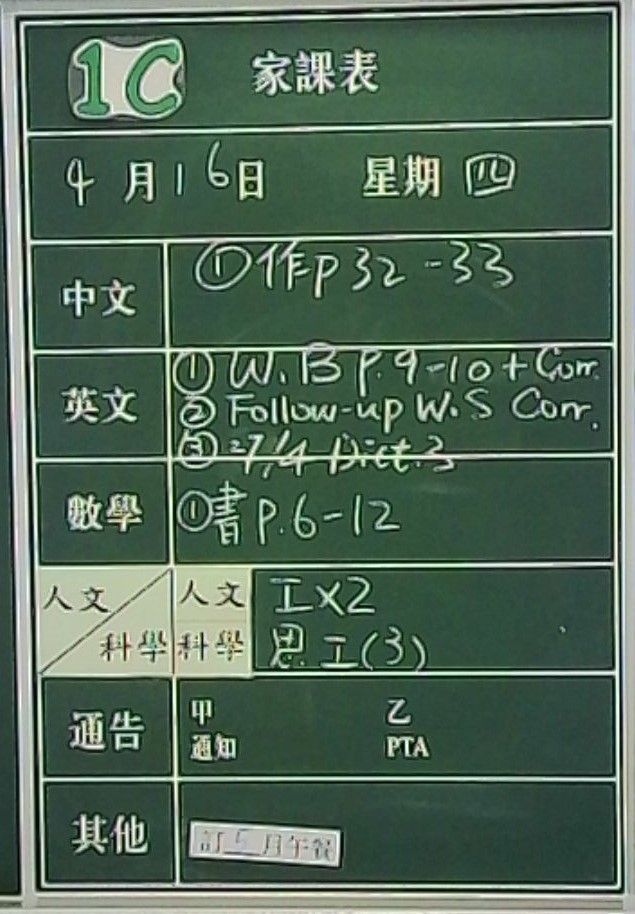 1C 家課表
4月16日 星期四
中文 ①作p 32-33
英文 ① W.B P.9-10 + Corr.
② Follow-up W.S Corr.
③ 27/4 Dict.3
數學 ①書P.6-12
人文 科學 人文 工x2
科學 思工(3)
通告 甲 乙
通知 PTA
其他 訂5月午餐